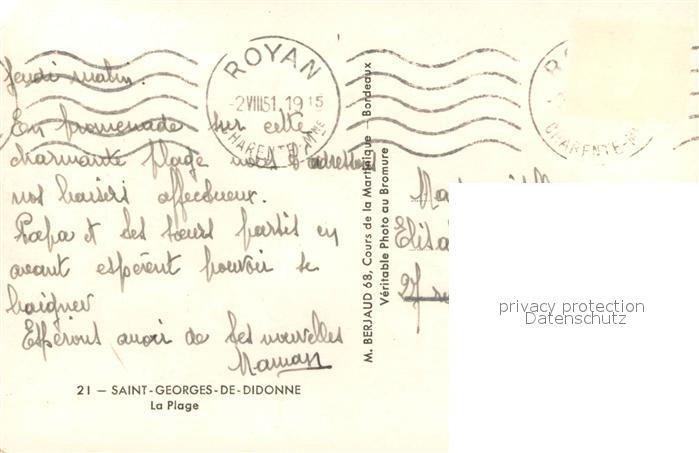 Jeudi matin.
En promenade sur cette
charmante plage nous t'adressons
nos baisers affectueux.
Papa et tes sœurs partis en
avant espèrent pouvoir se
baigner
Espérons avoir de tes nouvelles
Maman
21 — SAINT-GEORGES-DE-DIDONNE
La Plage
ROYAN
-2 VIII 51. 19 15
CHARENTE-MME
M. BERJAUD 68, Cours de la Martinique — Bordeaux
Véritable Photo au Bromure
RO
CHARENTE-M
27
privacy protection
Datenschutz